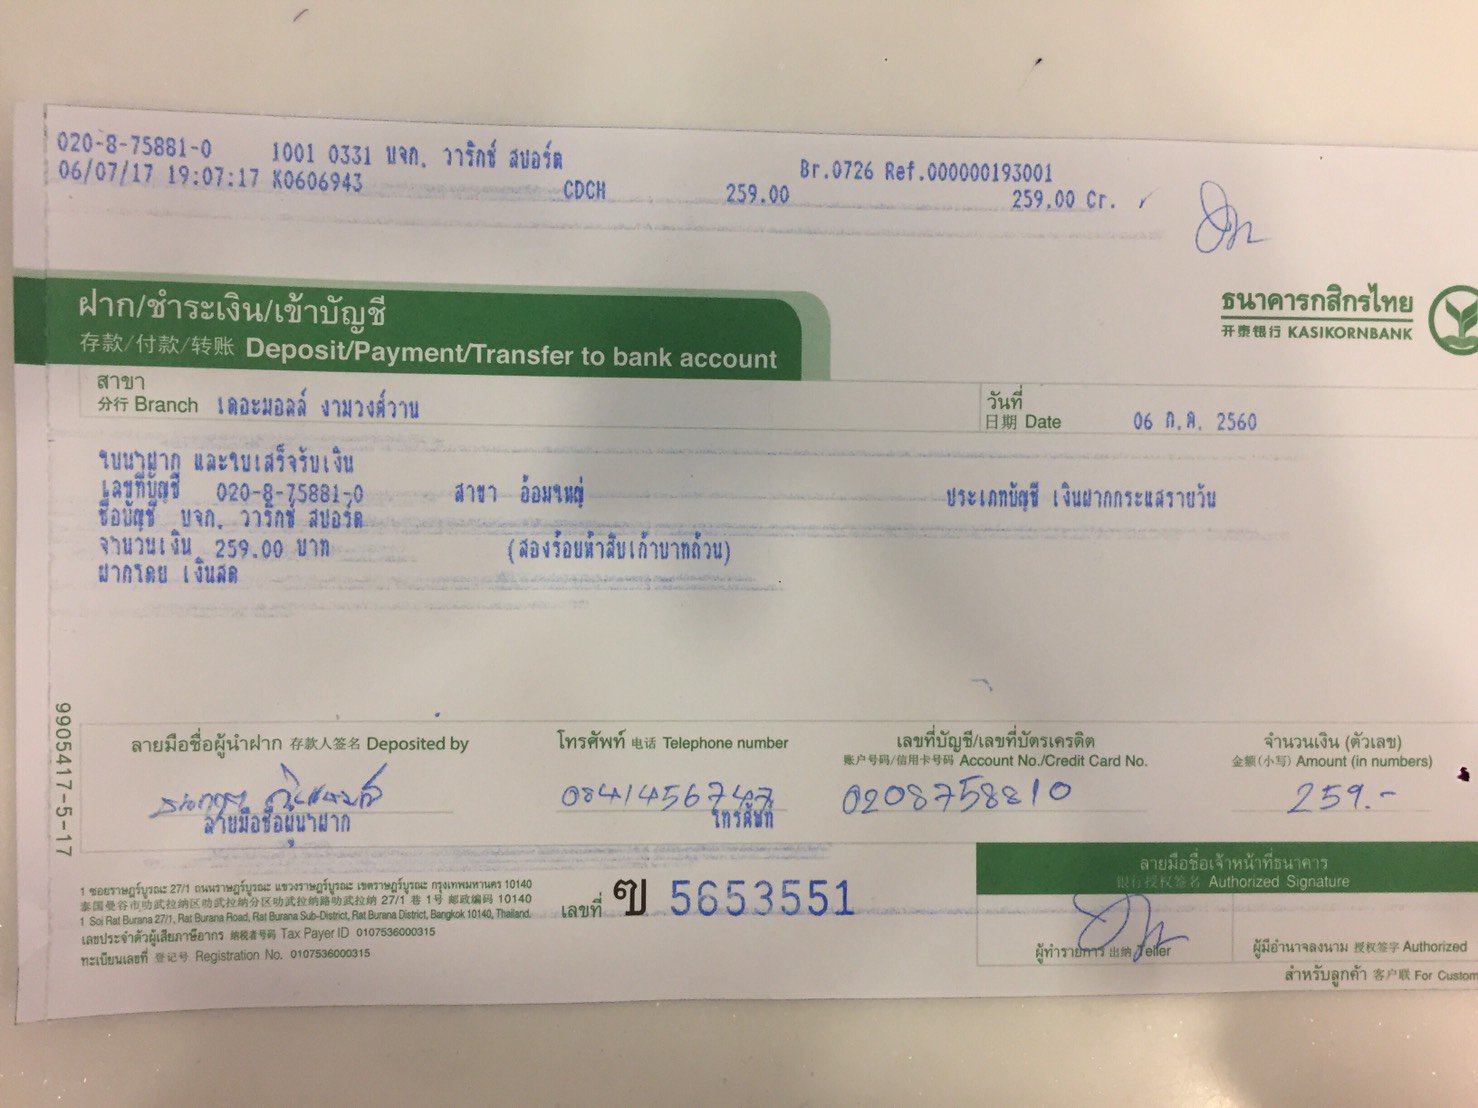 020-8-75881-0 1001 0331 บจก. วาริกซ์ สปอร์ต Br.0726 Ref.000000193001
06/07/17 19:07:17 K0606943 CDCH 259.00 259.00 Cr.
ฝาก/ชำระเงิน/เข้าบัญชี
存款/付款/转账 Deposit/Payment/Transfer to bank account
ธนาคารกสิกรไทย
开泰银行 KASIKORNBANK
สาขา
分行 Branch เดอะมอลล์ งามวงศ์วาน
วันที่
日期 Date 06 ก.ค. 2560
ใบนำฝาก และใบเสร็จรับเงิน
เลขที่บัญชี 020-8-75881-0 สาขา อ้อมใหญ่ ประเภทบัญชี เงินฝากกระแสรายวัน
ชื่อบัญชี บจก. วาริกซ์ สปอร์ต
จำนวนเงิน 259.00 บาท (สองร้อยห้าสิบเก้าบาทถ้วน)
ฝากโดย เงินสด
9905417-5-17
ลายมือชื่อผู้นำฝาก 存款人签名 Deposited by
ลายมือชื่อผู้นำฝาก
โทรศัพท์ 电话 Telephone number
0841456747
โทรศัพท์
เลขที่บัญชี/เลขที่บัตรเครดิต
账户号码/信用卡号码 Account No./Credit Card No.
0208758810
จำนวนเงิน (ตัวเลข)
金额(小写) Amount (in numbers)
259.-
1 ซอยราษฎร์บูรณะ 27/1 ถนนราษฎร์บูรณะ แขวงราษฎร์บูรณะ เขตราษฎร์บูรณะ กรุงเทพมหานคร 10140
泰国曼谷市叻武拉纳区叻武拉纳分区叻武拉纳路叻武拉纳 27/1 巷 1 号 邮政编码 10140
1 Soi Rat Burana 27/1, Rat Burana Road, Rat Burana Sub-District, Rat Burana District, Bangkok 10140, Thailand.
เลขประจำตัวผู้เสียภาษีอากร 纳税者号码 Tax Payer ID 0107536000315
ทะเบียนเลขที่ 登记号 Registration No. 0107536000315
เลขที่ ฃ 5653551
ลายมือชื่อเจ้าหน้าที่ธนาคาร
银行授权签名 Authorized Signature
ผู้ทำรายการ 出纳 Teller
ผู้มีอำนาจลงนาม 授权签字 Authorized
สำหรับลูกค้า 客户联 For Custom